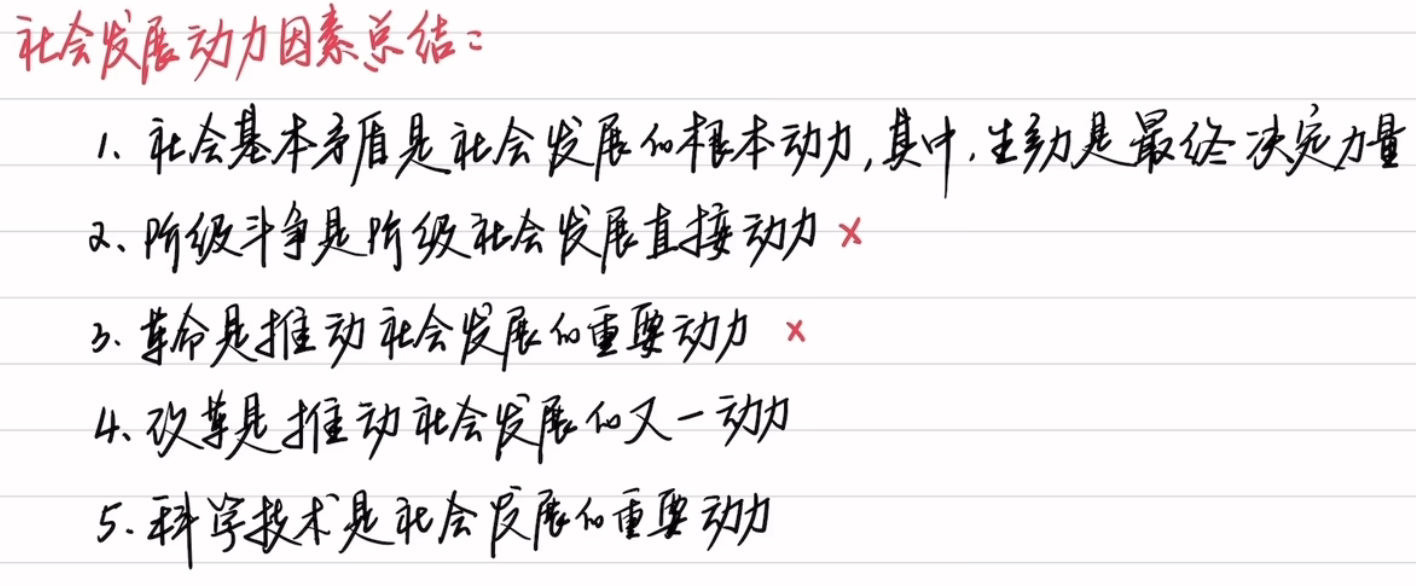 社会发展动力因素总结：
1、社会基本矛盾是社会发展的根本动力,其中,生产力是最终决定力量
2、阶级斗争是阶级社会发展直接动力 ×
3、革命是推动社会发展的重要动力 ×
4、改革是推动社会发展的又一动力
5、科学技术是社会发展的重要动力